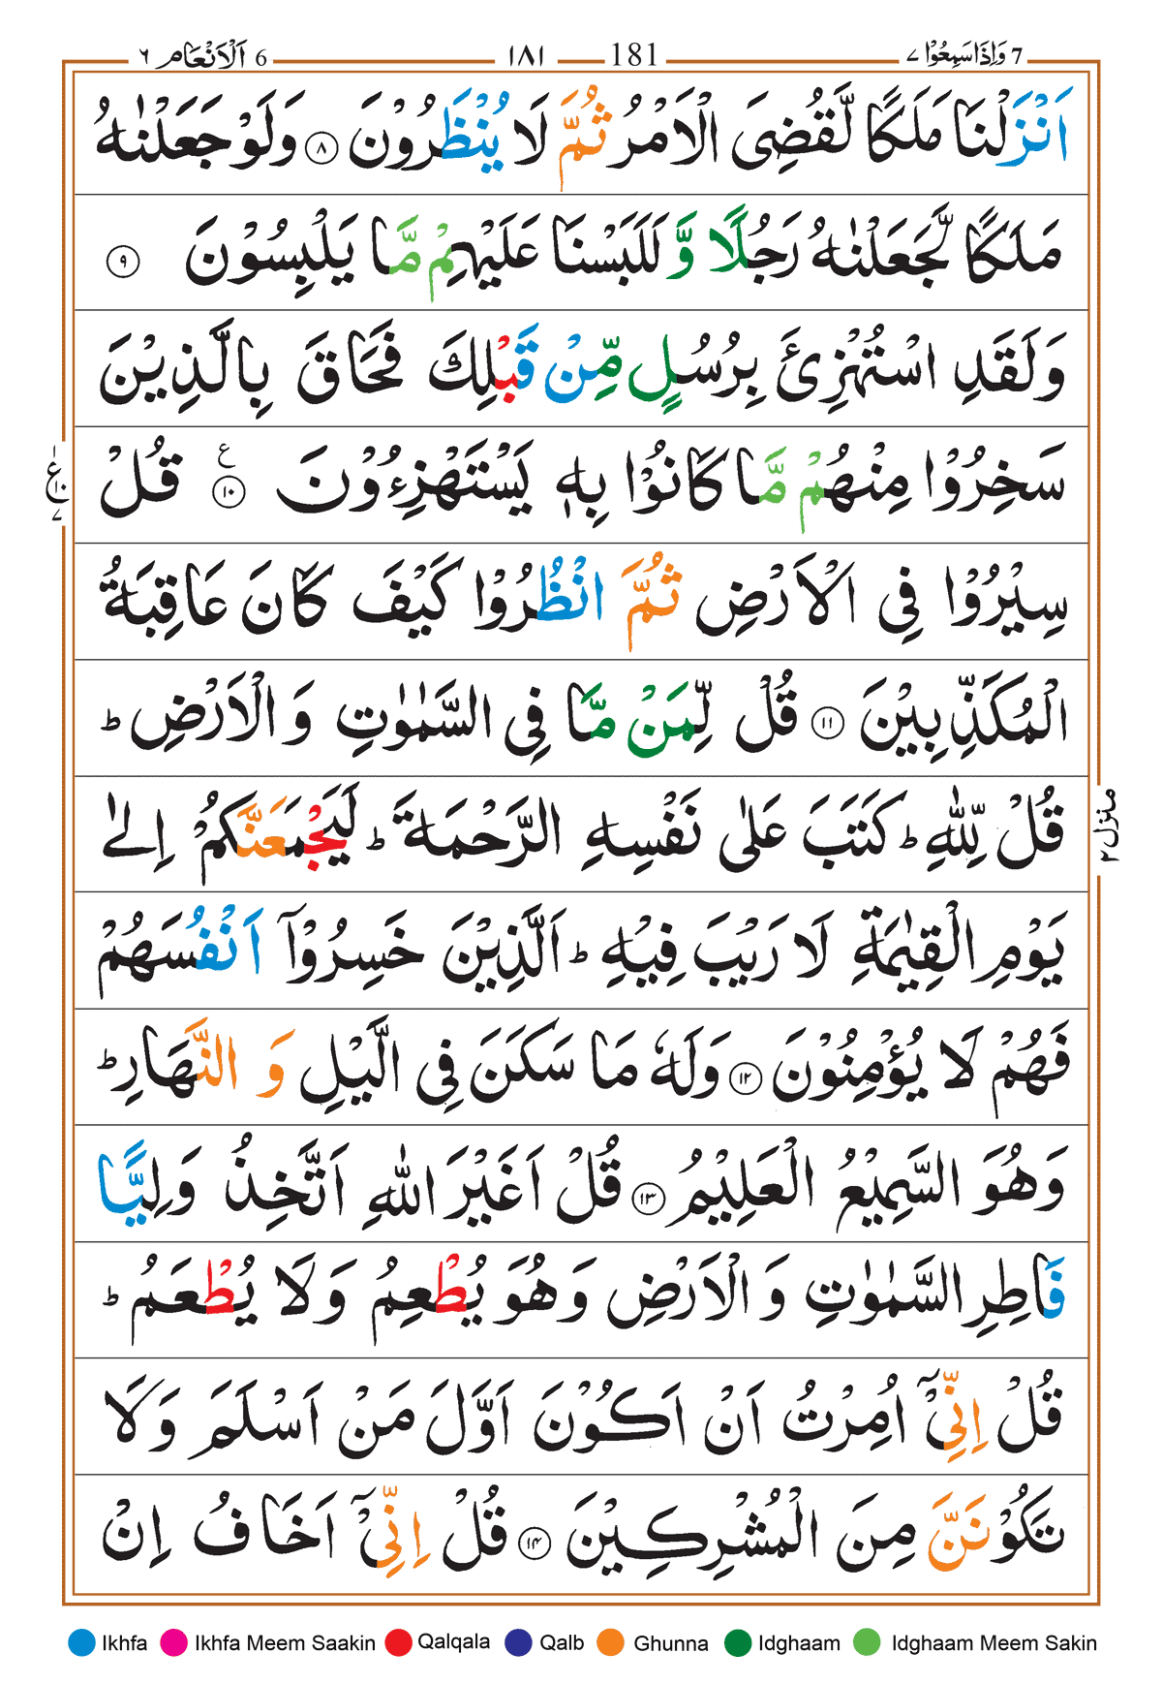 7 وَاِذَاسَمِعُوْا ٧ 181 ١٨١ 6 اَلْاَنْعَام ٦
اَنْزَلْنَا مَلَكًا لَّقُضِىَ الْاَمْرُ ثُمَّ لَا يُنْظَرُوْنَ ﴿۸﴾ وَلَوْ جَعَلْنٰهُ
مَلَكًا لَّجَعَلْنٰهُ رَجُلًا وَّ لَلَبَسْنَا عَلَيْهِمْ مَّا يَلْبِسُوْنَ ﴿۹﴾
وَلَقَدِ اسْتُهْزِئَ بِرُسُلٍ مِّنْ قَبْلِكَ فَحَاقَ بِالَّذِيْنَ
سَخِرُوْا مِنْهُمْ مَّا كَانُوْا بِهٖ يَسْتَهْزِءُوْنَ ﴿۱۰﴾ ع قُلْ
سِيْرُوْا فِى الْاَرْضِ ثُمَّ انْظُرُوْا كَيْفَ كَانَ عَاقِبَةُ
الْمُكَذِّبِيْنَ ﴿۱۱﴾ قُلْ لِّمَنْ مَّا فِى السَّمٰوٰتِ وَ الْاَرْضِ ؕ
قُلْ لِّلّٰهِ ؕ كَتَبَ عَلٰى نَفْسِهِ الرَّحْمَةَ ؕ لَيَجْمَعَنَّكُمْ اِلٰى
يَوْمِ الْقِيٰمَةِ لَا رَيْبَ فِيْهِ ؕ اَلَّذِيْنَ خَسِرُوْۤا اَنْفُسَهُمْ
فَهُمْ لَا يُؤْمِنُوْنَ ﴿۱۲﴾ وَلَهٗ مَا سَكَنَ فِى الَّيْلِ وَ النَّهَارِ ؕ
وَهُوَ السَّمِيْعُ الْعَلِيْمُ ﴿۱۳﴾ قُلْ اَغَيْرَ اللّٰهِ اَتَّخِذُ وَلِيًّا
فَاطِرِ السَّمٰوٰتِ وَ الْاَرْضِ وَهُوَ يُطْعِمُ وَلَا يُطْعَمُ ؕ
قُلْ اِنِّىْۤ اُمِرْتُ اَنْ اَكُوْنَ اَوَّلَ مَنْ اَسْلَمَ وَلَا
تَكُوْنَنَّ مِنَ الْمُشْرِكِيْنَ ﴿۱۴﴾ قُلْ اِنِّىْۤ اَخَافُ اِنْ
ع ۱۰ ۷
منزل ۲
Ikhfa Ikhfa Meem Saakin Qalqala Qalb Ghunna Idghaam Idghaam Meem Sakin